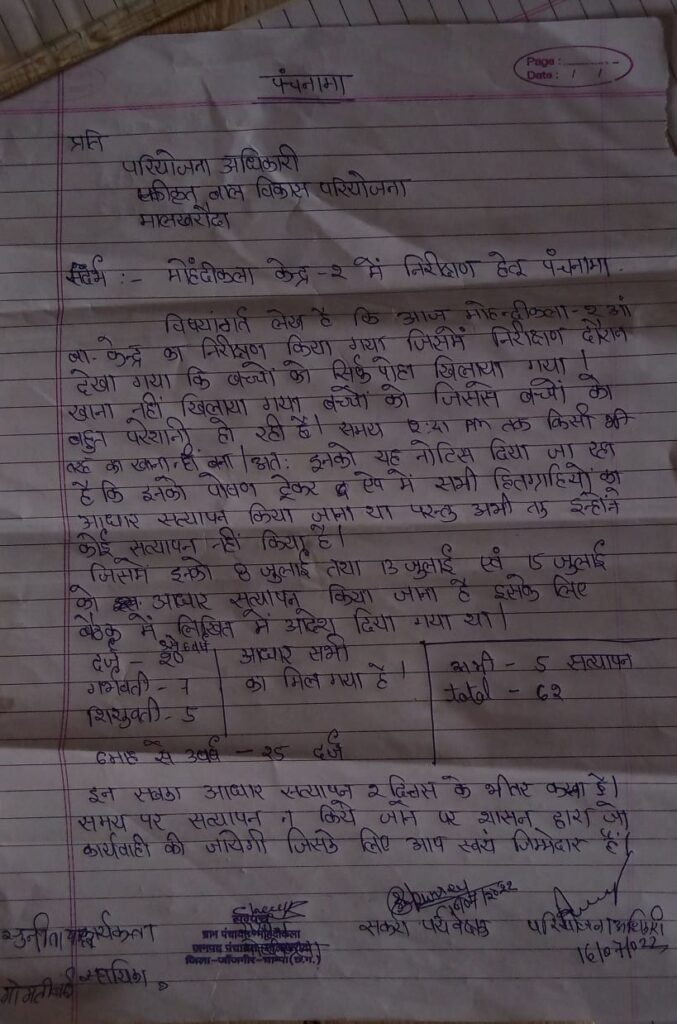 Page :
Date : / /
पंचनामा
प्रति
परियोजना अधिकारी
एकीकृत बाल विकास परियोजना
मालखरौदा
संदर्भ :- मोहंदीकला केन्द्र - २ में निरीक्षण हेतु पंचनामा .
विषयांतर्गत लेख है कि आज मोहन्दीकला - २ आं
बा. केन्द्र का निरीक्षण किया गया जिसमें निरीक्षण दौरान
देखा गया कि बच्चों को सिर्फ पोहा खिलाया गया ।
खाना नहीं खिलाया गया बच्चों को जिससे बच्चों को
बहुत परेशानी हो रही है। समय तक किसी भी
का खाना नहीं बना । अतः इनको यह नोटिस दिया जा रहा
है कि इनको पोषण ट्रेकर ऐप में सभी हितग्राहियों का
आधार सत्यापन किया जाना था परन्तु अभी तक इन्होंने
कोई सत्यापन नहीं किया है।
जिसमें इनको 8 जुलाई तथा 13 जुलाई एवं 15 जुलाई
को आधार सत्यापन किया जाना है इसके लिए
बैठक में लिखित में आदेश दिया गया था।
दर्ज - २० आधार सभी अभी - 5 सत्यापन
गर्भवती - 7 का मिल गया है । total - 62
शिशुवती - 5
6माह से 3वर्ष - २5 दर्ज
इन सबका आधार सत्यापन २ दिवस के भीतर करना है।
समय पर सत्यापन न किये जाने पर शासन द्वारा जो
कार्यवाही की जायेगी जिसके लिए आप स्वयं जिम्मेदार हैं।
सुनीता कार्यकर्ता
सरपंच
ग्राम पंचायत मोहंदीकला
जनपद पंचायत
जिला-जाँजगीर-चाम्पा(छ.ग.)
पर्यवेक्षक
परियोजना अधिकारी
16/07/022
गोमतीबाई सहायिका